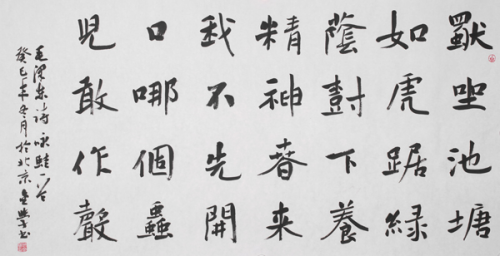 獨坐池塘
如虎踞綠
蔭樹下養
精神春来
我不先開
口哪個蟲
兒敢作聲
毛澤東詩詠蛙一首
癸巳年冬月於北京書